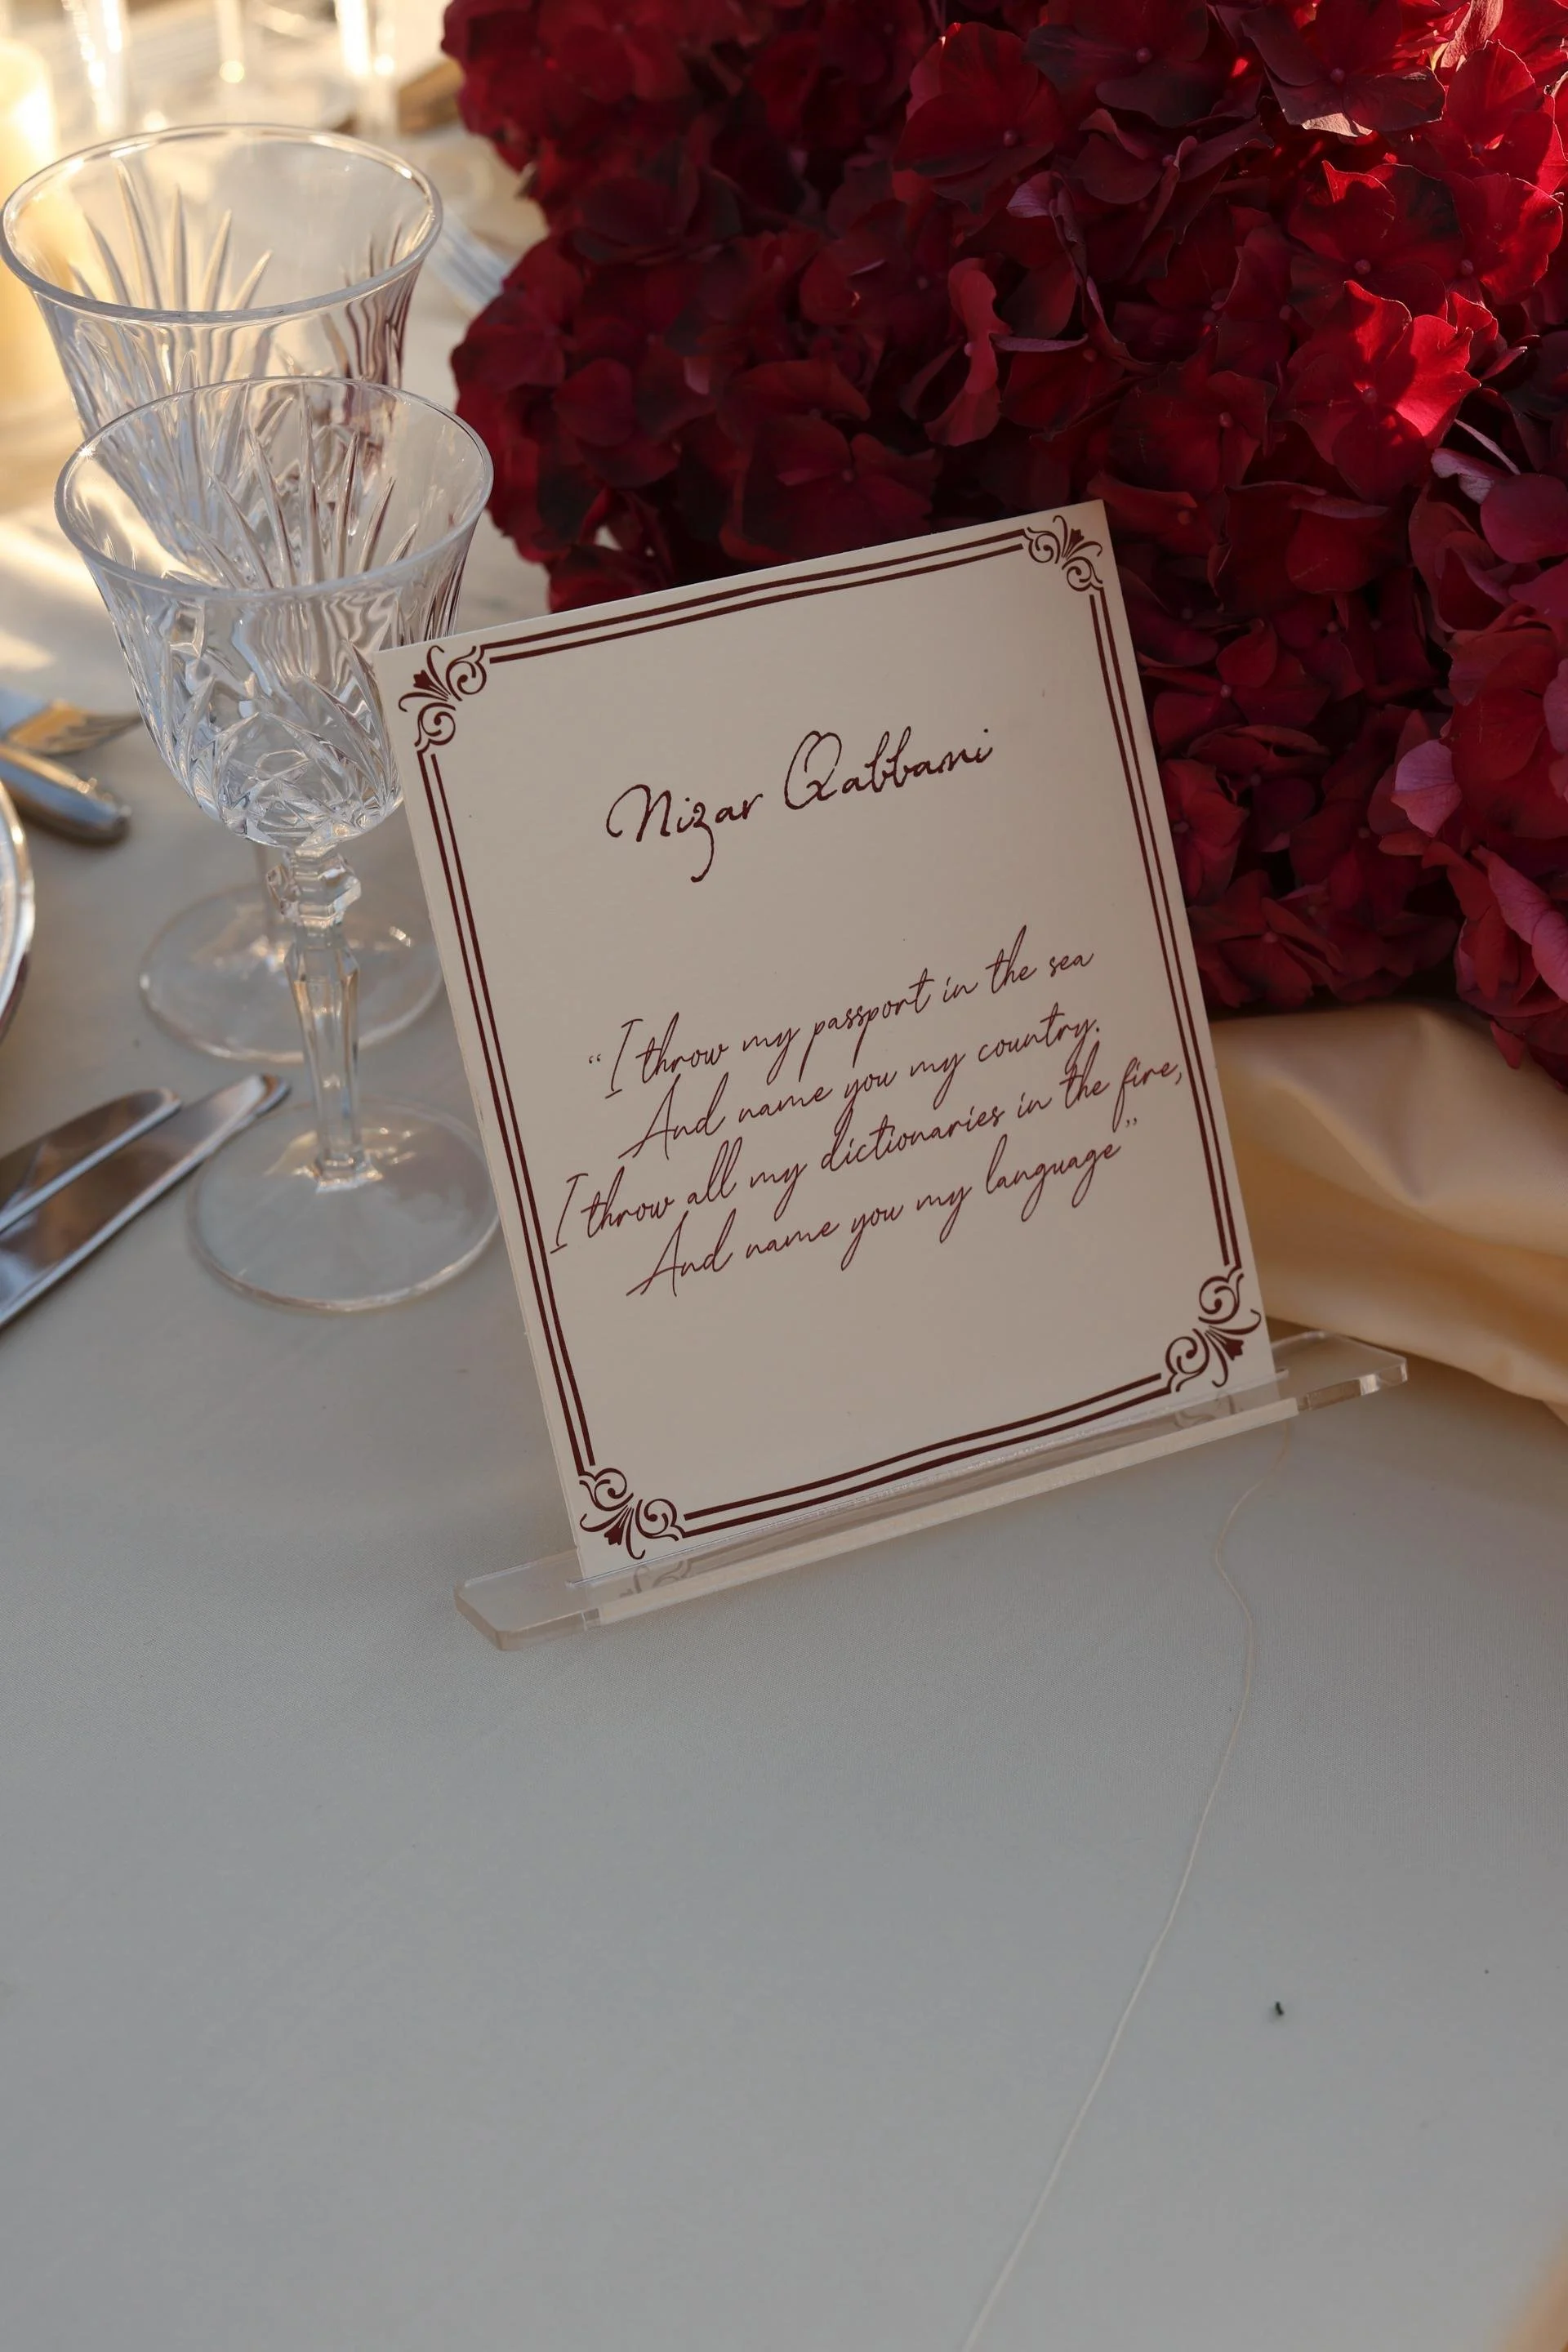 Nizar Qabbani
“I throw my passport in the sea
And name you my country.
I throw all my dictionaries in the fire,
And name you my language”